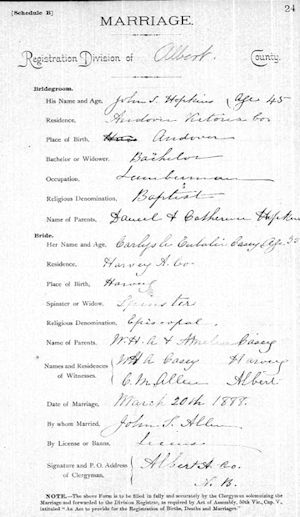 24
[Schedule B]
MARRIAGE.
Registration Division of Albert County.
Bridegroom.
His Name and Age, John S. Hopkins Age 45
Residence, Andover Victoria Co
Place of Birth, Andover
Bachelor or Widower, Bachelor
Occupation, Lumberman
Religious Denomination, Baptist
Name of Parents, Daniel & Catherine Hopkins
Bride.
Her Name and Age, Eulalia Casey Age
Residence, Harvey A. Co.
Place of Birth, Harvey
Spinster or Widow, Spinster
Religious Denomination, Episcopal.
Name of Parents, W. H. A & Casey
Names and Residences of Witnesses. W H A Casey Harvey
C. M. Allen Albert
Date of Marriage, March 20th 1888.
By whom Married, John S. Allen
By License or Banns, License
Signature and P. O. Address of Clergyman, Albert A. Co.
N. B.
NOTE.—The above Form is to be filled in fully and accurately by the Clergyman solemnizing the
Marriage and forwarded to the Division Registrar, as required by Act of Assembly, 50th Vic., Cap. V.,
intituled "An Act to provide for the Registration of Births, Deaths and Marriages."